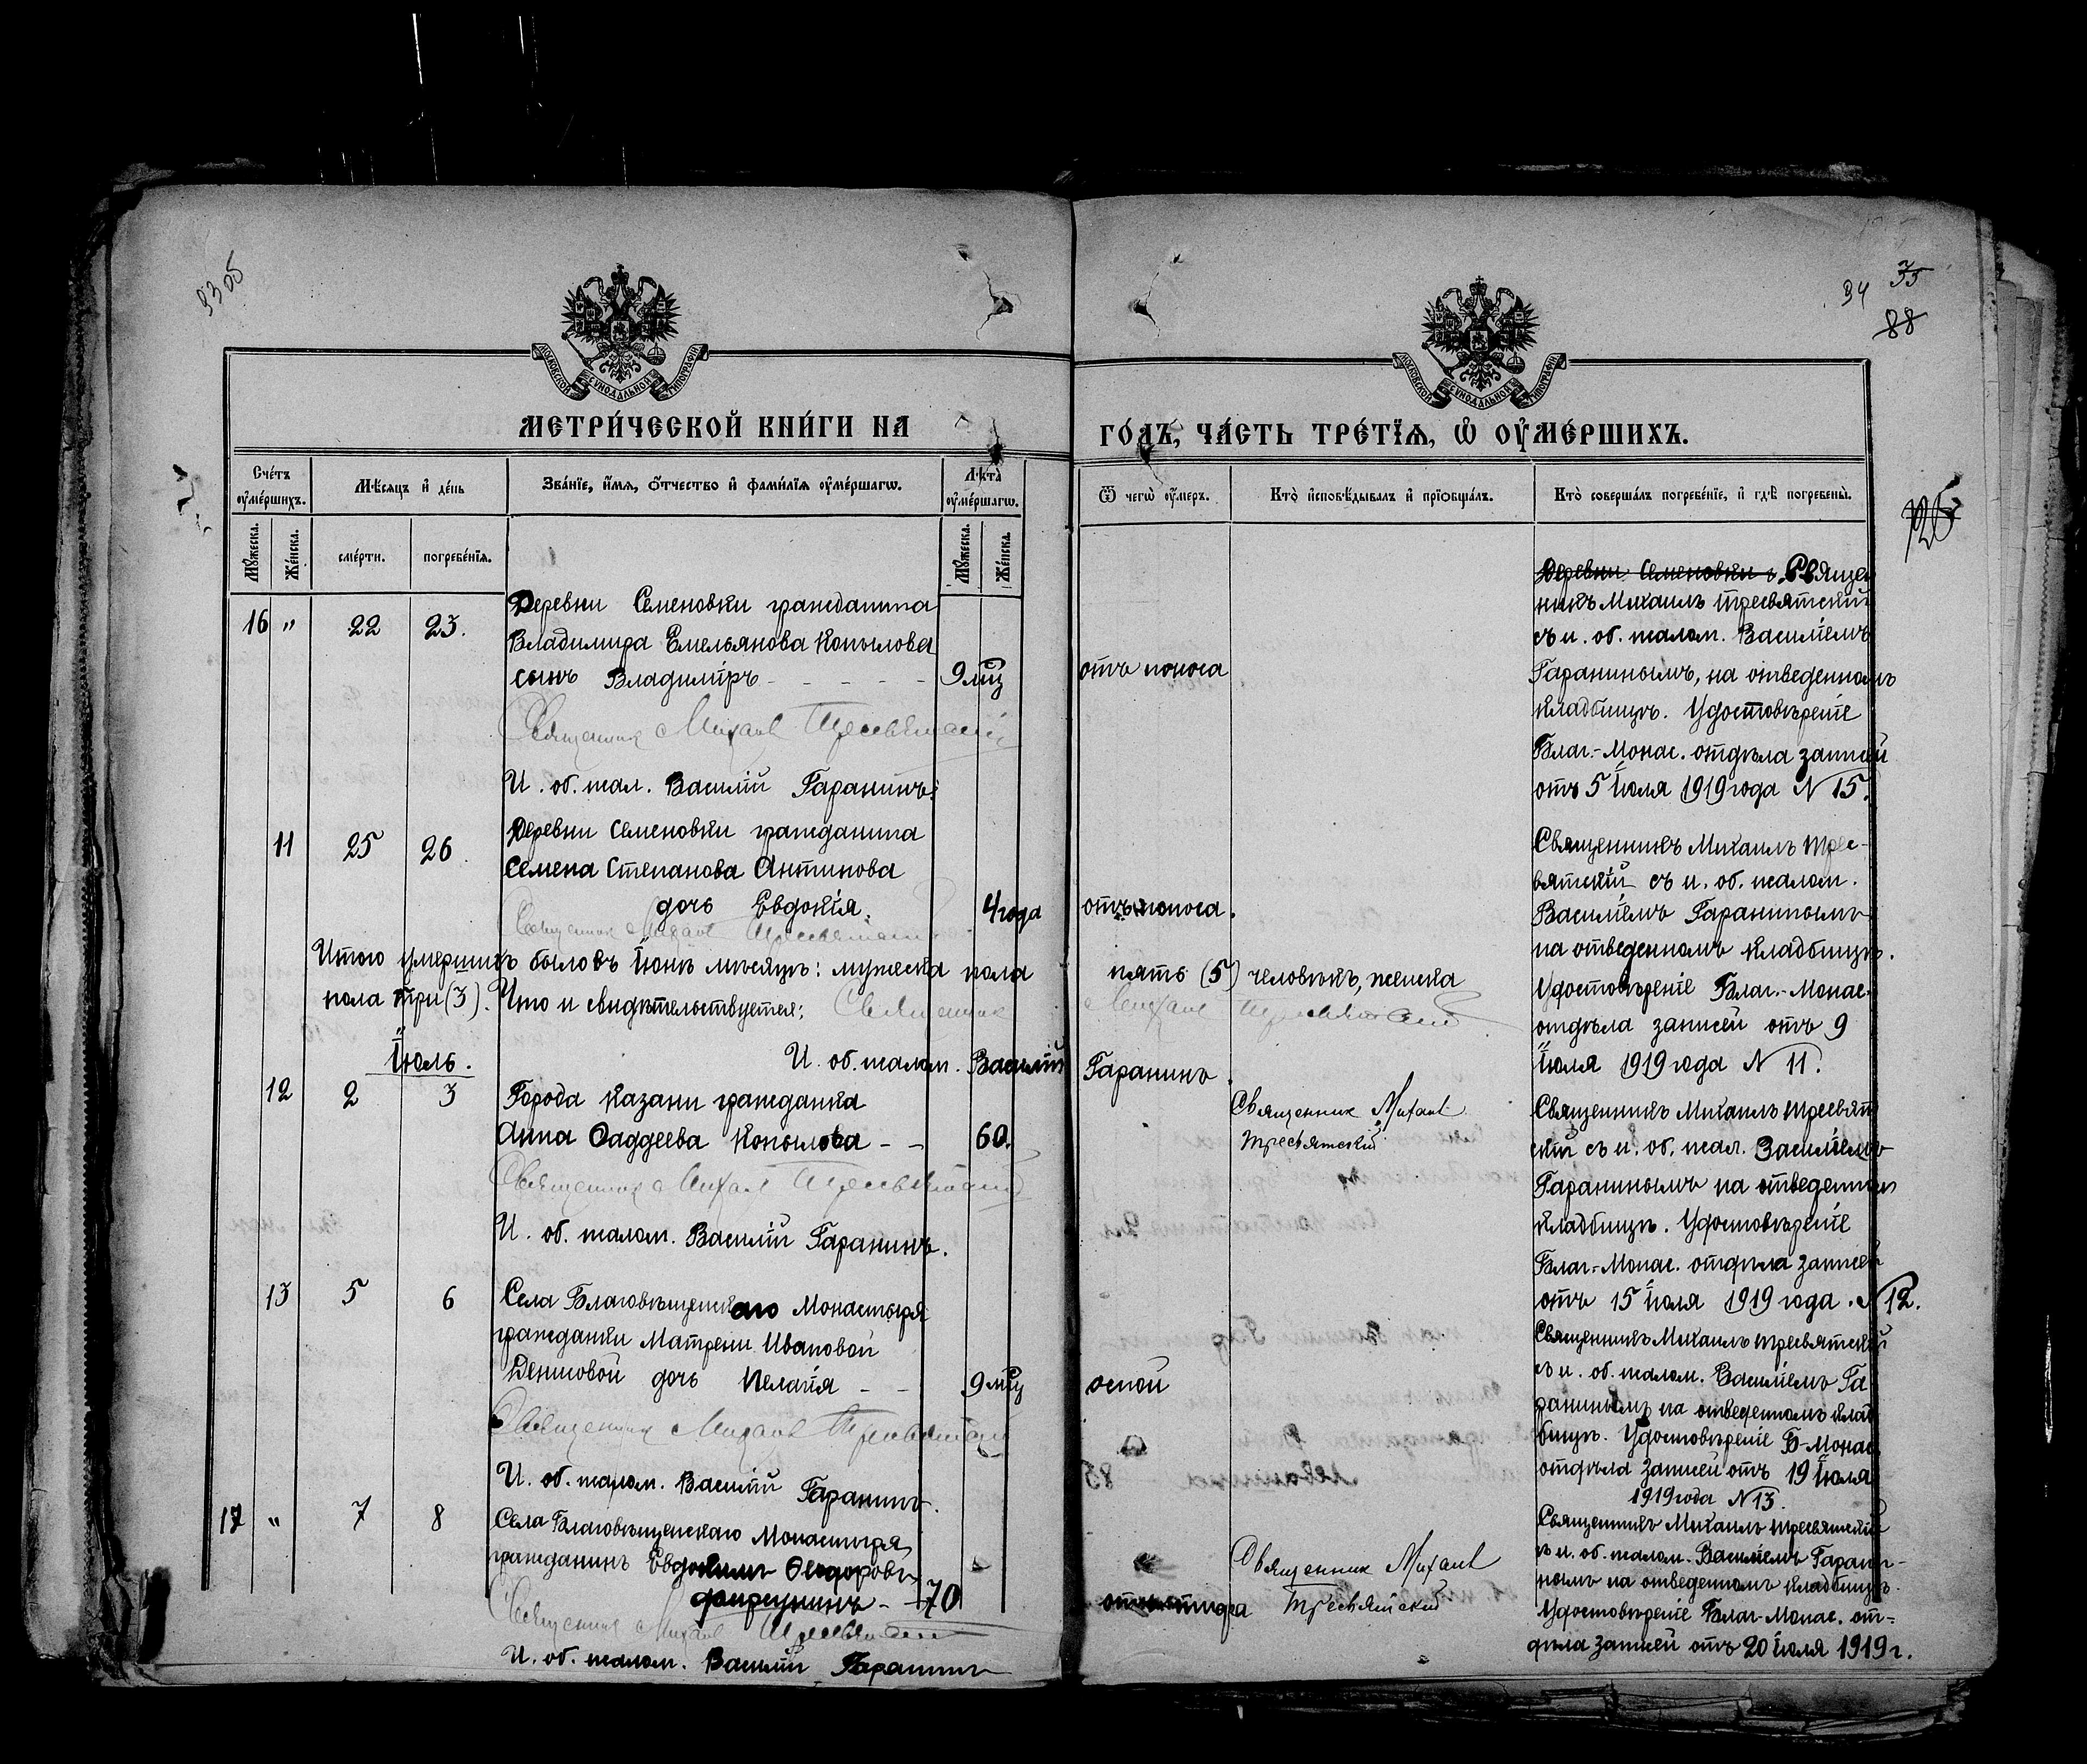 93 об
94 35
88
МОСКОВСКОЙ СѴНОДАЛЬНОЙ ТИПОГРАФІИ
МОСКОВСКОЙ СѴНОДАЛЬНОЙ ТИПОГРАФІИ
МЕТРИ́ЧЕСКОЙ КНИ́ГИ НА
ГО́ДЪ, ЧА́СТЬ ТРЕ́ТЇѦ, Ѡ҆ ОУ҆МЕ́РШИХЪ.
Сче́тъ оу҆ме́ршихъ.
Мѣ́сѧцъ и҆ де́нь
Зва́нїе, и҆́мѧ, о҆́тчество и҆ фами́лїѧ оу҆ме́ршагѡ.
Лѣ́та оу҆ме́ршагѡ.
Ѿ чегѡ̀ оу҆́меръ.
Кто̀ и҆сповѣ́дывалъ и҆ прїѡбща́лъ.
Кто̀ соверша́лъ погребе́нїе, и҆ гдѣ̀ погребены̀.
Мꙋ́жеска.
Же́нска.
сме́рти.
погребе́нїѧ.
Мꙋ́жеска.
Же́нска.
16 " 22 23.
Деревни Семеновки гражданина
Владимира Емельянова Копылова
сынъ Владиміръ - - - - - 9 мц
Священник Михаил Тресвятский
И. об. псал. Василій Гаранинъ.
отъ поноса
Деревни Семеновки Священ
никъ Михаилъ Тресвятскій
съ и. об. псалом. Василіемъ
Гаранинымъ, на отведенномъ
кладбищѣ. Удостовѣреніе
Благ.-Монас. отдѣла записей
отъ 5 Іюля 1919 года N 15.
11 25 26
Деревни Семеновки гражданина
Семена Степанова Антинова
дочь Евдокія. 4 года
Священник Михаил Тресвятский
отъ поноса.
Священникъ Михаилъ Трес-
вятскій съ и. об. псалом.
Василіемъ Гаранинымъ
на отведенномъ кладбищѣ.
Удостовѣреніе Благ.-Монас.
отдѣла записей отъ 9
Іюля 1919 года N 11.
Итого умершихъ было въ Іюнѣ мѣсяцѣ: мужеска пола пять (5) человѣкъ, женска
пола три (3). Что и свидѣтельствуется: Священник Михаил Тресвятский
И. об. псалом. Василій Гаранинъ.
Іюль.
12 2 3
Города Казани гражданка
Анна Фаддеева Копылова - - 60.
Священник Михаил Тресвятский
И. об. псалом. Василій Гаранинъ.
Священник Михаил
Тресвятский
Священникъ Михаилъ Тресвят
скій съ и. об. псал. Василіемъ
Гаранинымъ на отведенном
кладбищѣ. Удостовѣреніе
Благ.-Монас. отдѣла записей
отъ 15 Іюля 1919 года. N 12.
13 5 6
Села Благовѣщенскаго Монастыря
гражданки Матрени Ивановой
Денисовой дочь Пелагія - - 9 мц
Священник Михаил Тресвятский
И. об. псалом. Василій Гаранинъ.
оспой
Священникъ Михаилъ Тресвятскій
съ и. об. псалом. Василіемъ Га
ранинымъ на отведенномъ клад
бищѣ. Удостовѣреніе Б-Монас
отдѣла Записей отъ 19 Іюля
1919 года N 13.
17 " 7 8
Села Благовѣщенскаго Монастыря
гражданинъ Евдокимъ Ѳеодоровъ
- 70
Священник Михаил Тресвятский
И. об. псалом. Василій Гаранинъ
Священник Михаил
Тресвятский
Священникъ Михаилъ Тресвятскій
съ и. об. псалом. Василіемъ Гарани-
нымъ на отведенномъ кладбищѣ.
Удостовѣреніе Благ-Монас. от-
дѣла записей отъ 20 Іюля 1919 г.